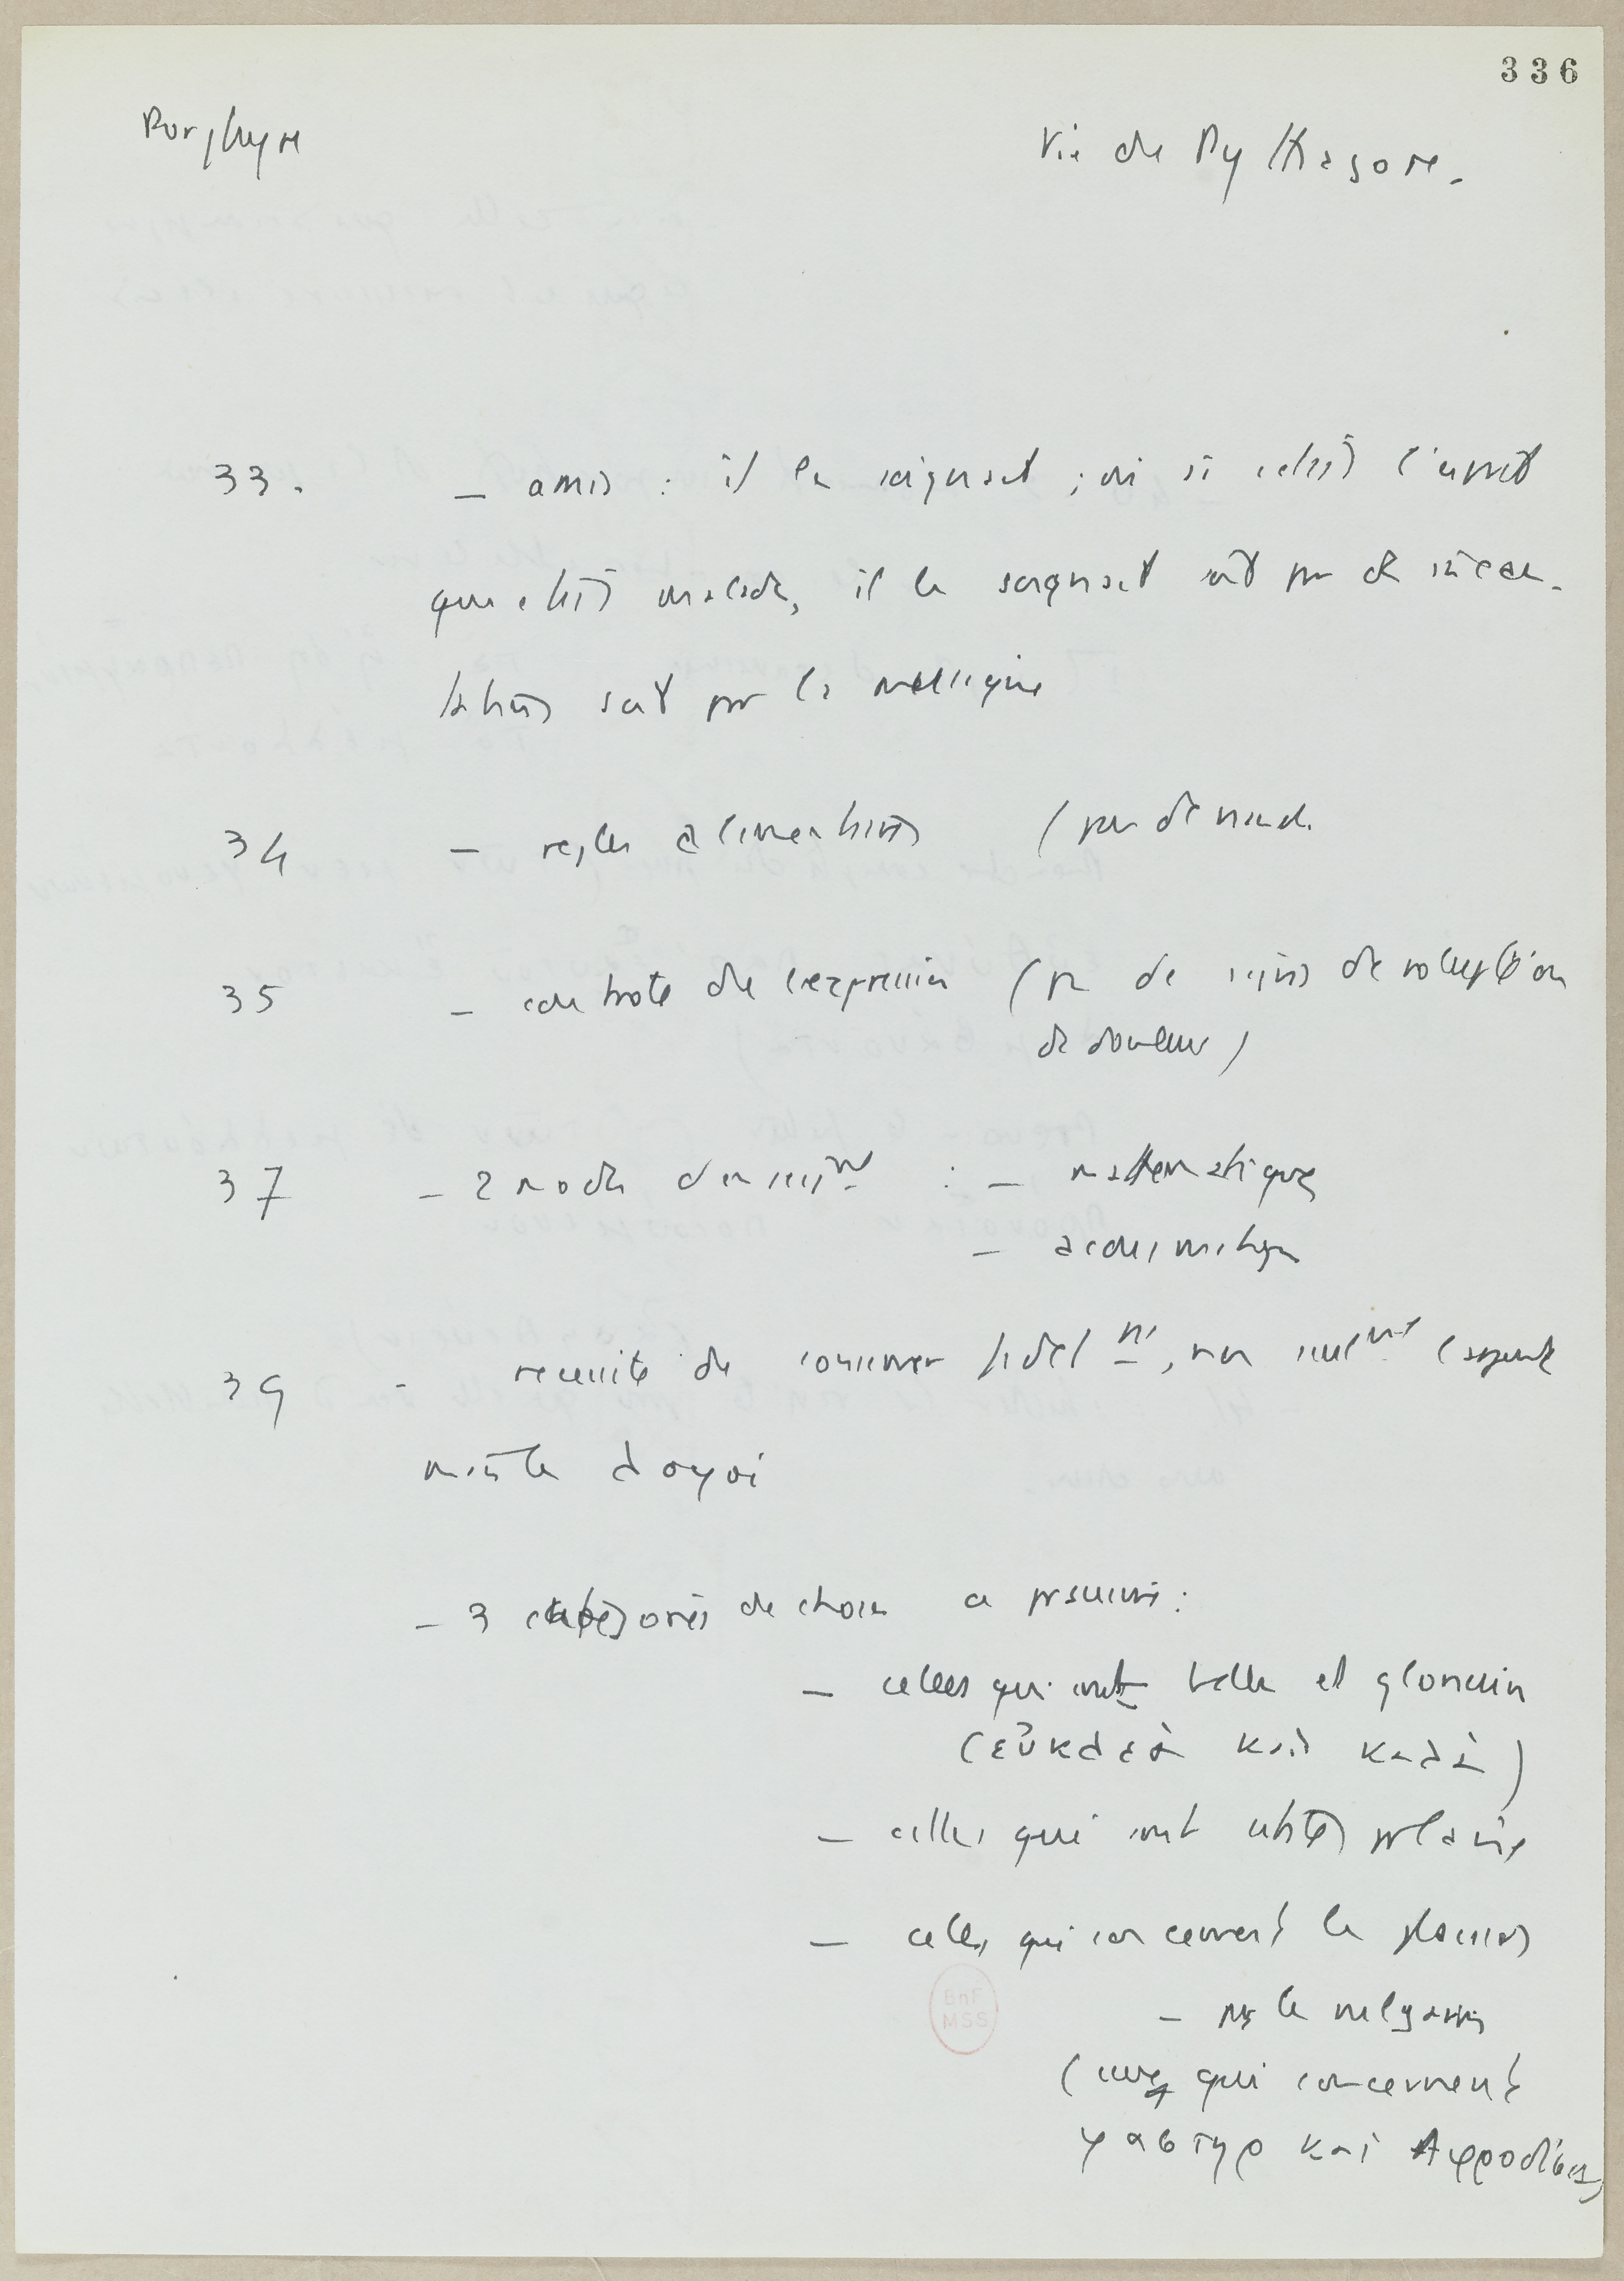 336
Porphyre Vie de Pythagore.
33. – amis : il les soignait ; ou si celui-ci l'esprit
que celui-ci malade, il le soignait soit par de incan-
tations soit par la musique
34 – regles alimentaires (peu de viande
35 – controle de l'expression (pas de signes de volupté ou
de douleur)
37 – 2 modes d'enseignt : – mathematiques
– acousmatique
39 – necessité de conserver fidelnt, non seulmnt
mais la
– 3 categories de choses a poursuivre :
– celles qui sont belles et glorieuses
(εὐκλεᾶ καὶ καλὰ)
– celles qui sont utiles pr la vie
– celles qui concernent les plaisirs
– pas les vulgaires
(ceux qui concernent
γαστηρ και Αφροδισια)
BnF
MSS